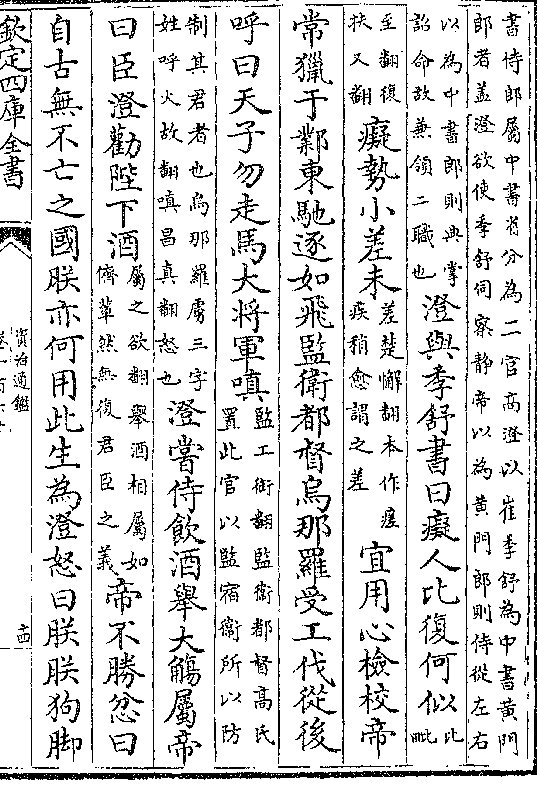 書侍郎屬中書省分為二官高澄以崔季舒為中書黃門
郎者蓋澄欲使季舒伺察静帝以為黃門郎則侍從左右
以為中書郎則典掌
詔命故兼領二職也
澄與季舒書曰癡人比復何似
比
毗
至翻復
扶又翻
癡勢小差未
差楚懈翻本作瘥
疾稍愈謂之差
宜用心檢校帝
常獵于鄴東馳逐如飛監衛都督烏那羅受工伐從後
呼曰天子勿走馬大將軍嗔
監工銜翻監衞都督高氏
置此官以監宿衞所以防
制其君者也烏那羅虜三字
姓呼火故翻嗔昌真翻怒也
澄嘗侍飲酒舉大觴屬帝
曰臣澄勸陛下酒
屬之欲翻舉酒相屬如
儕輩然無復君臣之義
帝不勝忿曰
自古無不亡之國朕亦何用此生為澄怒曰朕朕狗脚
欽定四庫全書
資治通鑑
十四